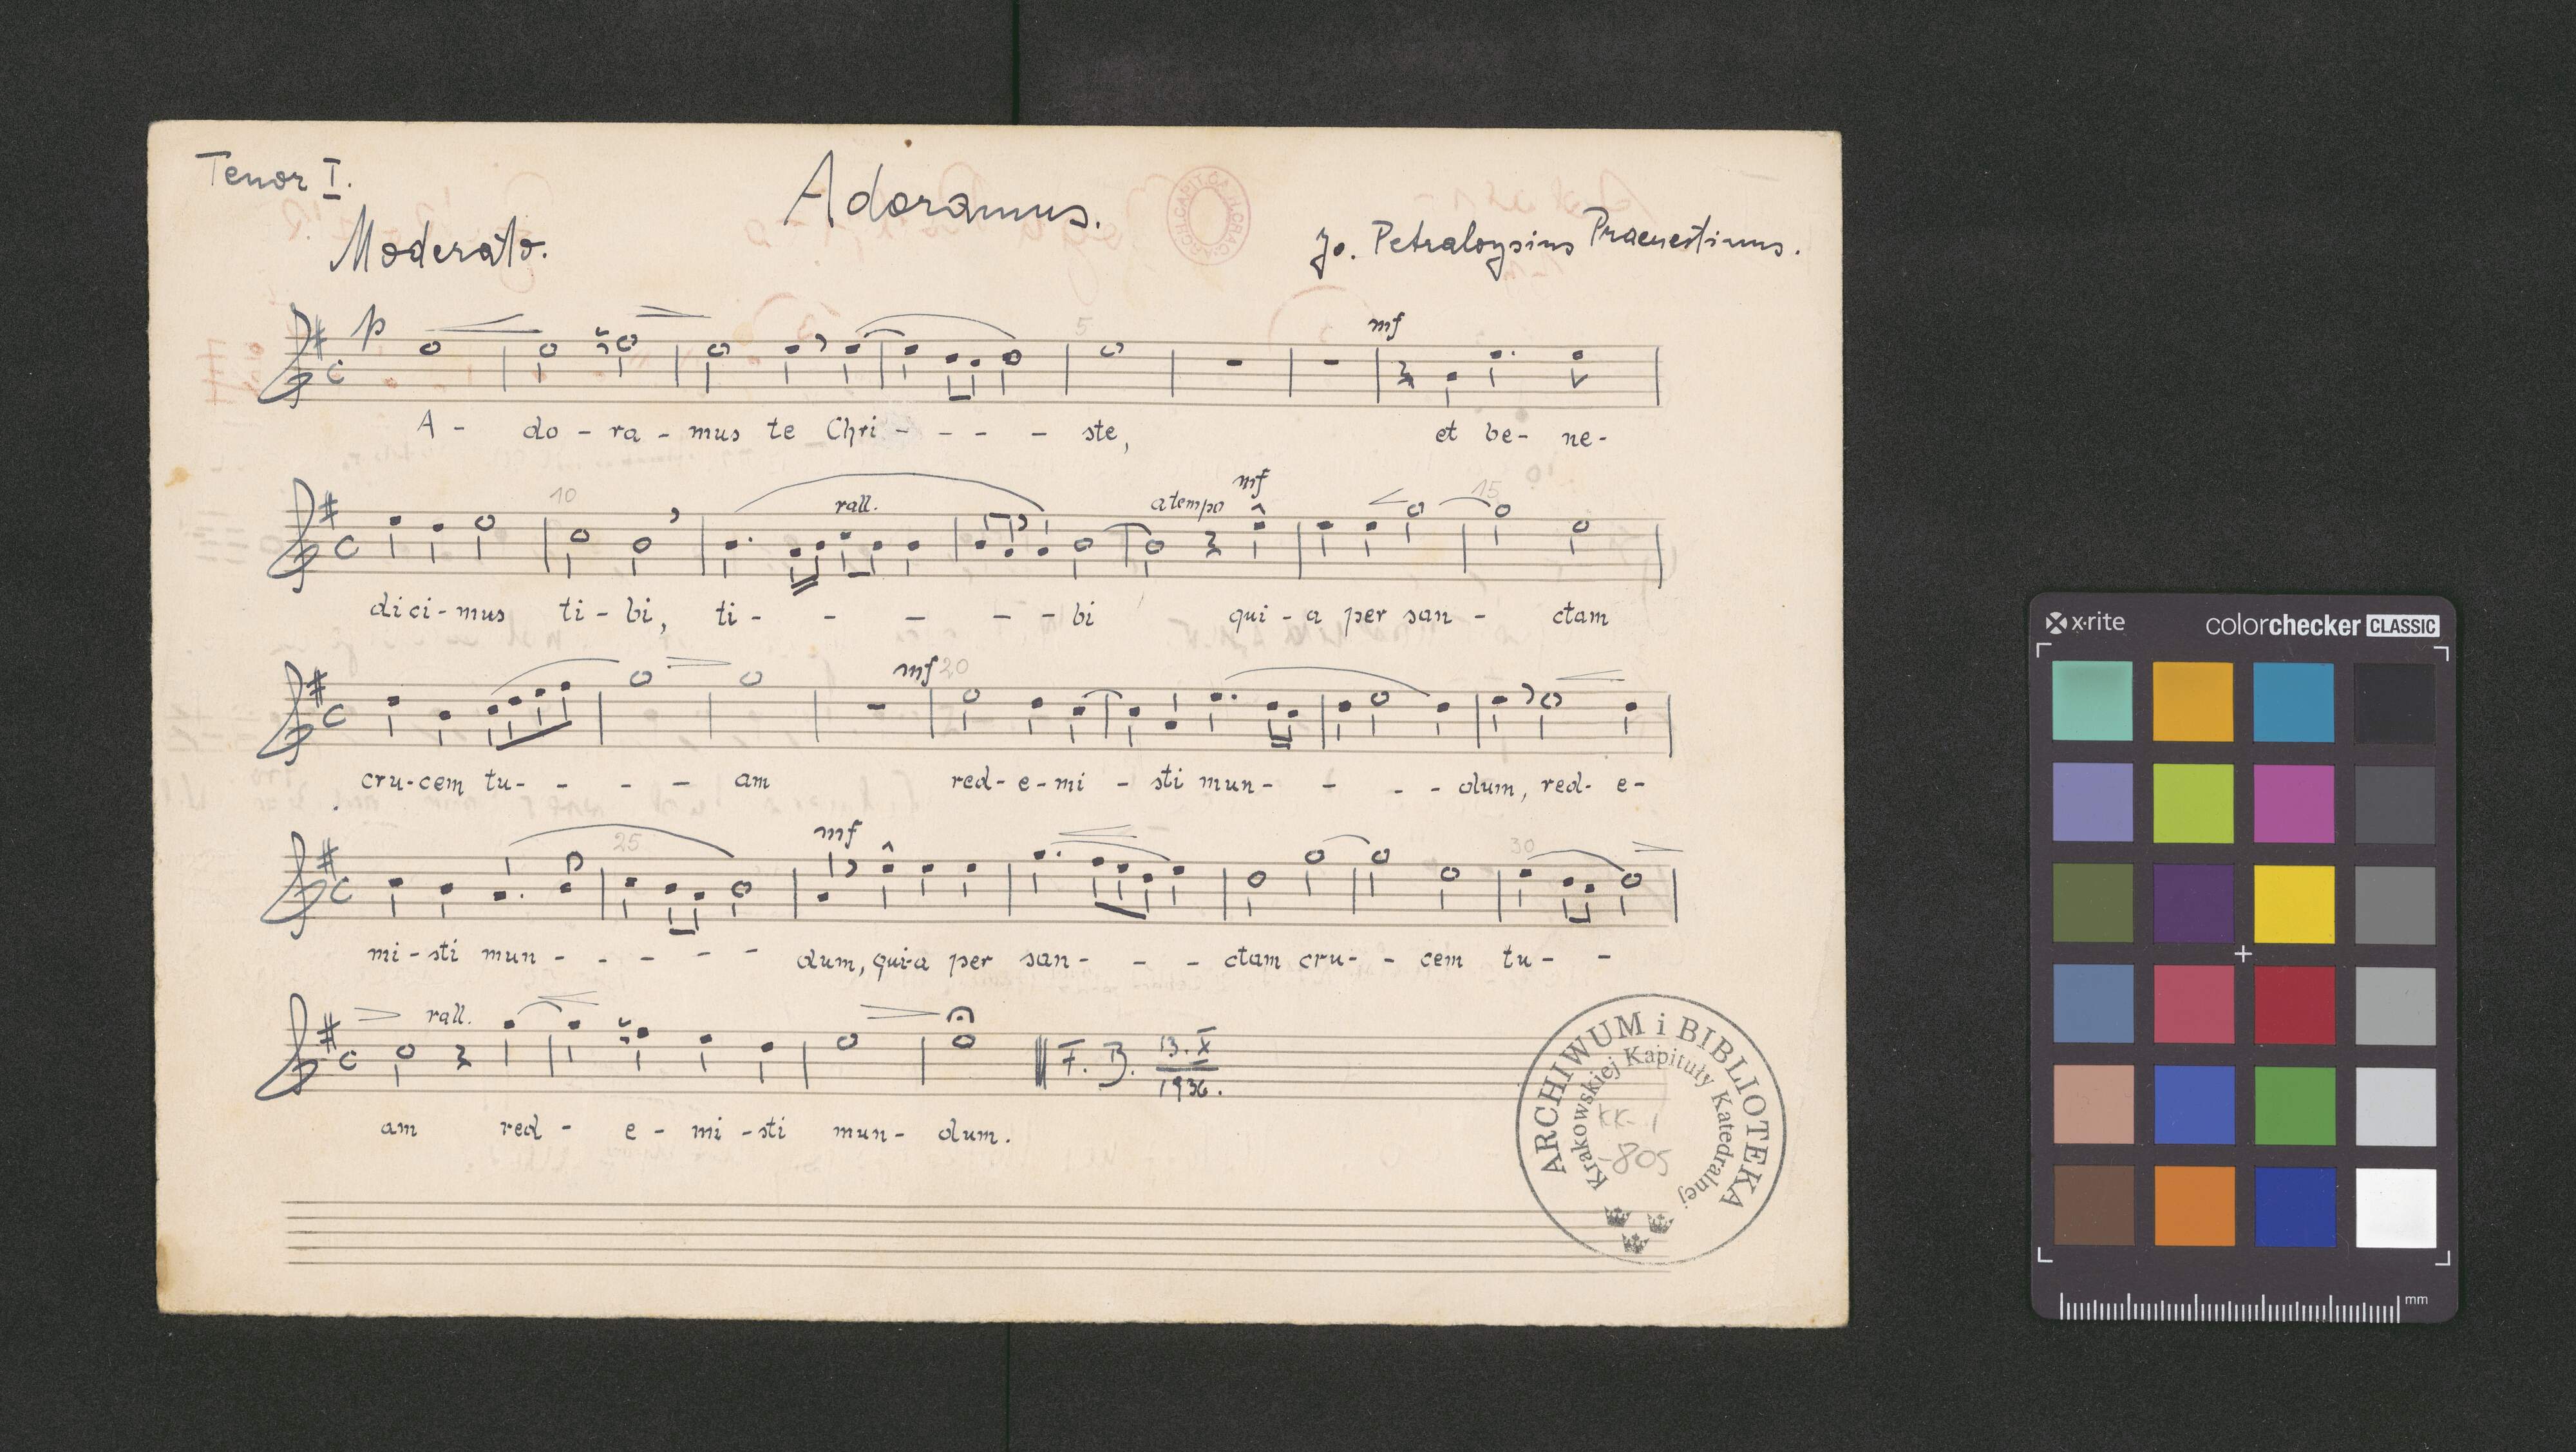 Tenor I.
Adoramus.
ARCH. CAPIT. CATH. CRAC.
Moderato.
Jo. Petraloysius Praenestinus.
p
5
mf
A - do - ra - mus te Chri - - - - ste, et be - ne -
10
rall.
a tempo
mf
15
di ci - mus ti - bi, ti - - - - - bi qui - a per san - ctam
mf 20
cru - cem tu - - - - am red - e - mi - sti mun - - - - dum, red - e -
25
mf
30
mi - sti mun - - - - - dum, qui - a per san - - - ctam cru - - cem tu - -
rall.
F. B. 13. X
1936.
am red - e - mi - sti mun - dum.
ARCHIWUM i BIBLIOTEKA
Krakowskiej Kapituły Katedralnej
KK. 1
-805
x·rite
colorchecker CLASSIC
mm